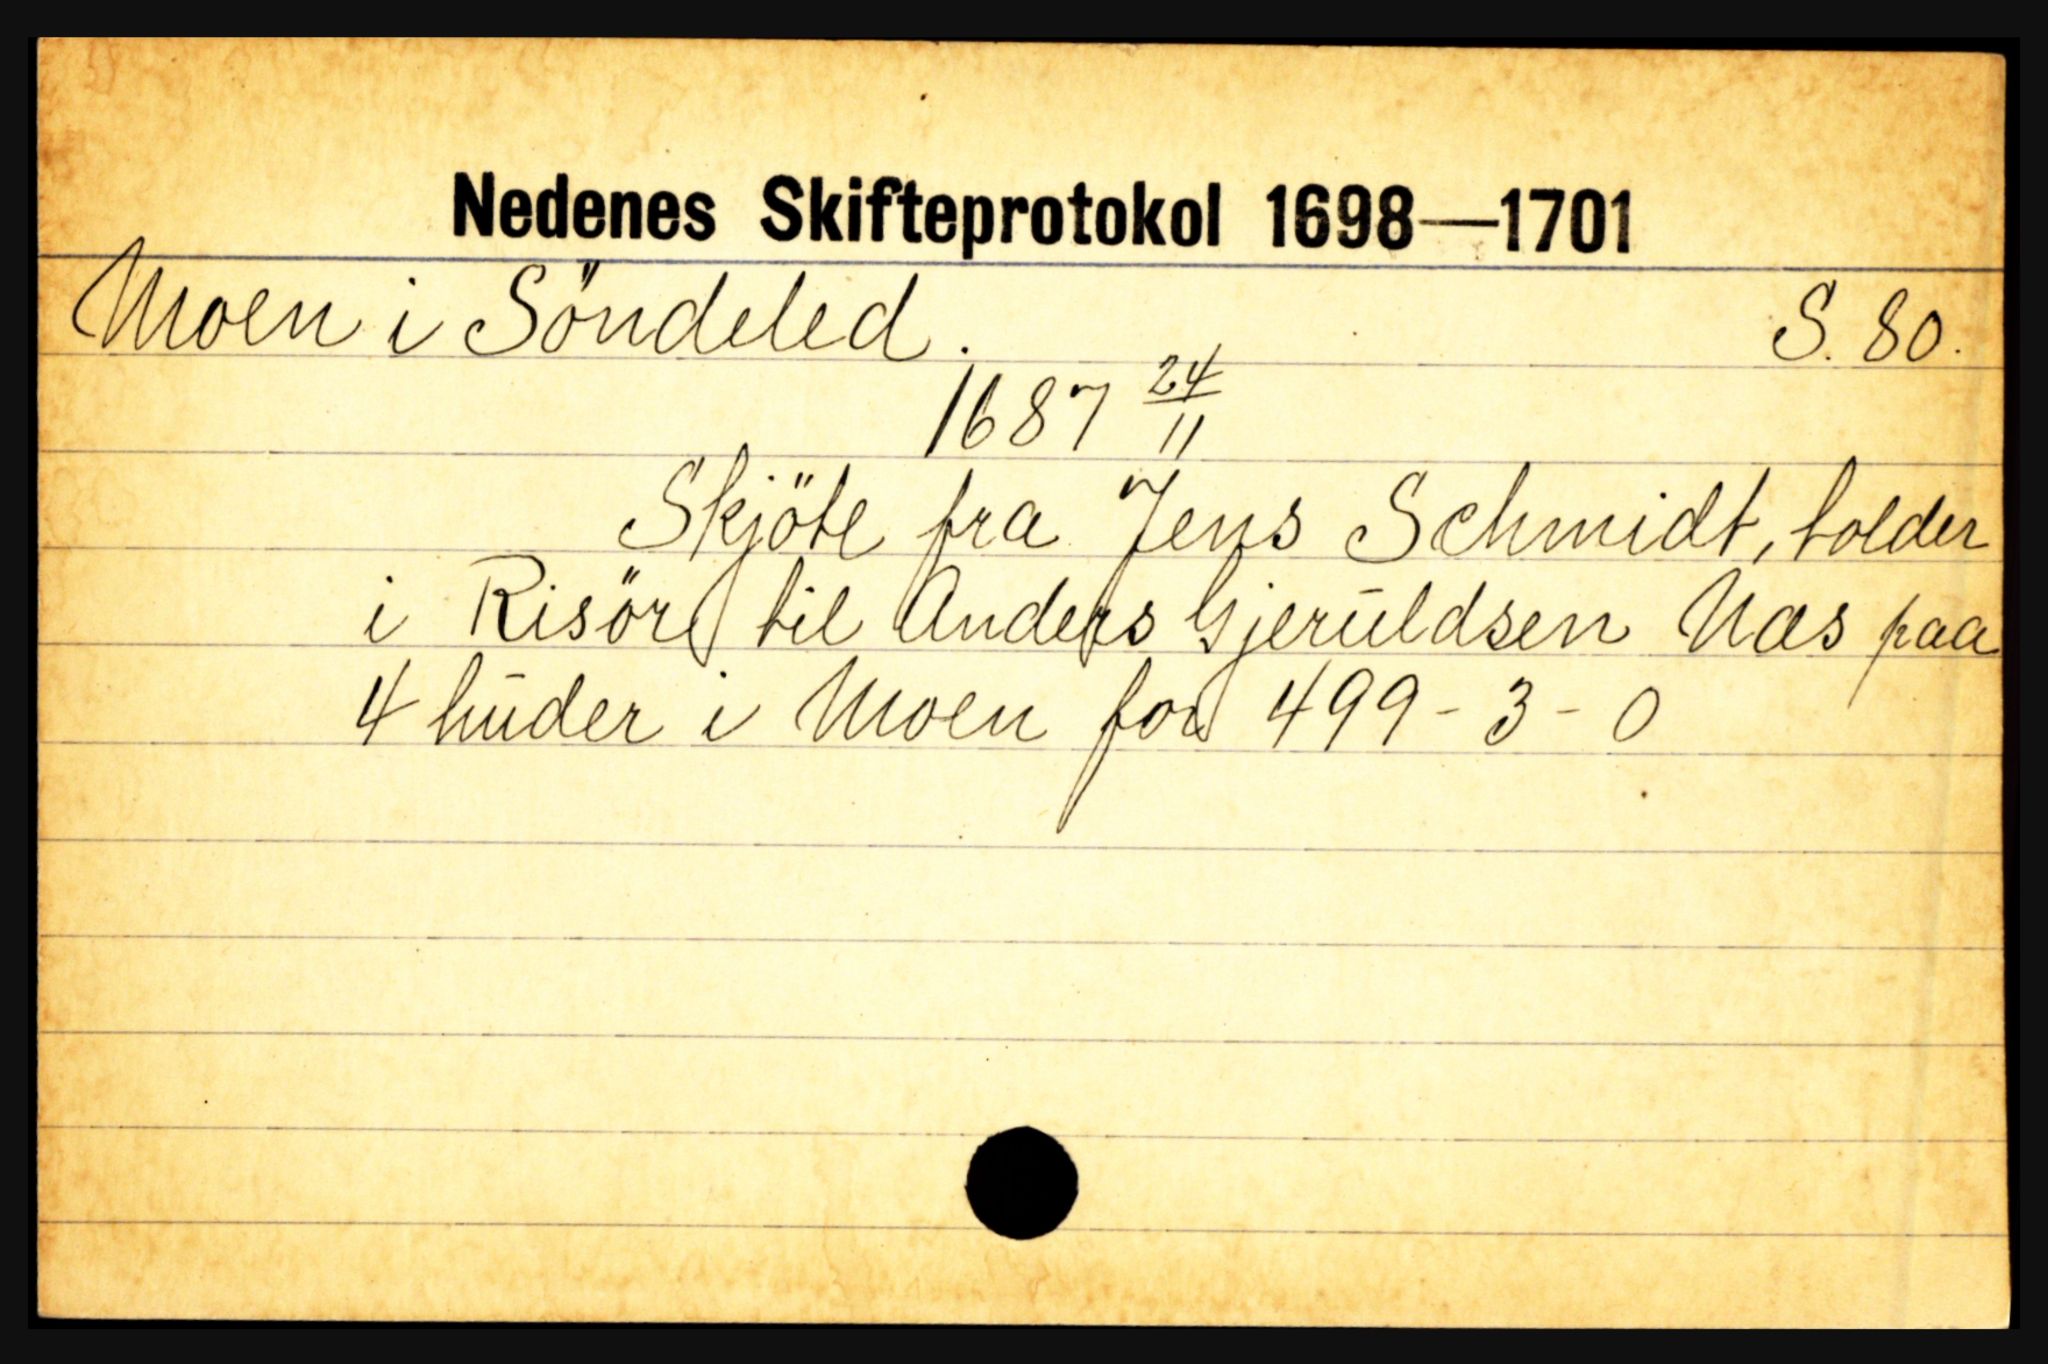 Nedenes Skifteprotokol 1698—1701
Moen i Söndeled. S. 80.
1687 24/11
Skjöte fra Jens Schmidt, tolder
i Risör til Anders Gjeruldsen Næs paa
4 huder i Moen for 499-3-0